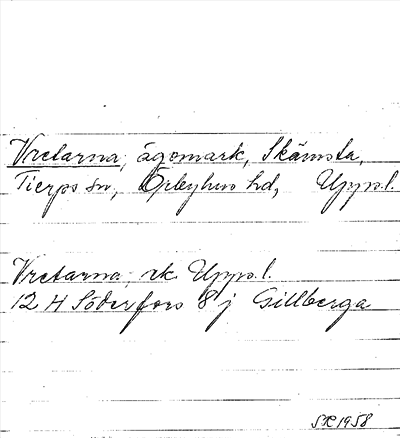 Vretarna, ägomark, Skämsta,
Tierps sn, Örbyhus hd, Uppl.
Vretarna, rk Uppl.
12 H Söderfors 8 j Gillberga
SR 1958